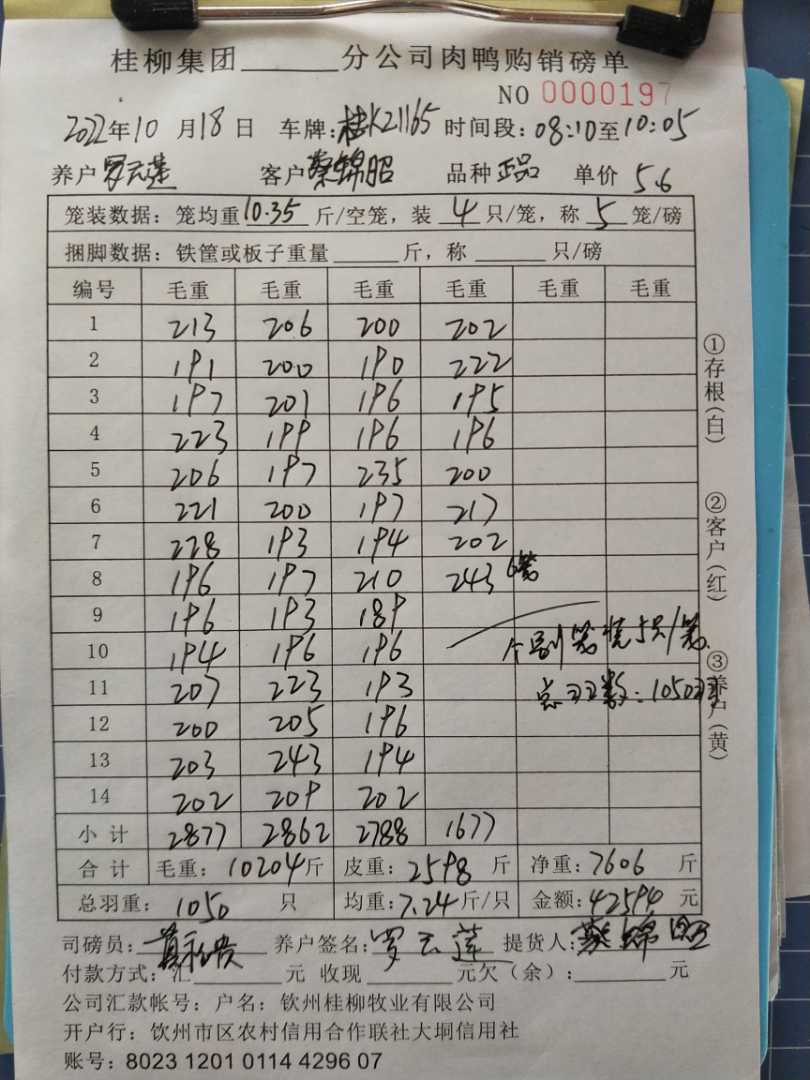 桂柳集团______分公司肉鸭购销磅单
NO 0000197
2022年10月18日 车牌:桂K21165 时间段:08:10至10:05
养户罗云莲 客户蔡锦昭 品种正品 单价 5.6
笼装数据:笼均重10.35斤/空笼,装 4 只/笼,称 5 笼/磅
捆脚数据:铁筐或板子重量______斤,称______只/磅
编号 毛重 毛重 毛重 毛重 毛重 毛重
1 213 206 200 202
2 191 200 190 222
3 197 201 196 195
4 223 199 196 196
5 206 197 235 200
6 221 200 197 217
7 228 193 194 202
8 196 197 210 243 6笼
9 196 193 189
10 194 196 196 个别笼装5只/笼
11 207 223 193 总只数:1050只
12 200 205 196
13 203 243 194
14 202 209 202
小计 2877 2862 2788 1677
合计 毛重:10204斤 皮重:2598斤 净重:7606斤
总羽重:1050只 均重:7.24斤/只 金额:42594元
司磅员: 养户签名:罗云莲 提货人:蔡锦昭
付款方式:汇______元 收现______元欠(余):______元
公司汇款帐号:户名:钦州桂柳牧业有限公司
开户行:钦州市区农村信用合作联社大垌信用社
账号:8023 1201 0114 4296 07
①存根(白)
②客户(红)
③养户(黄)